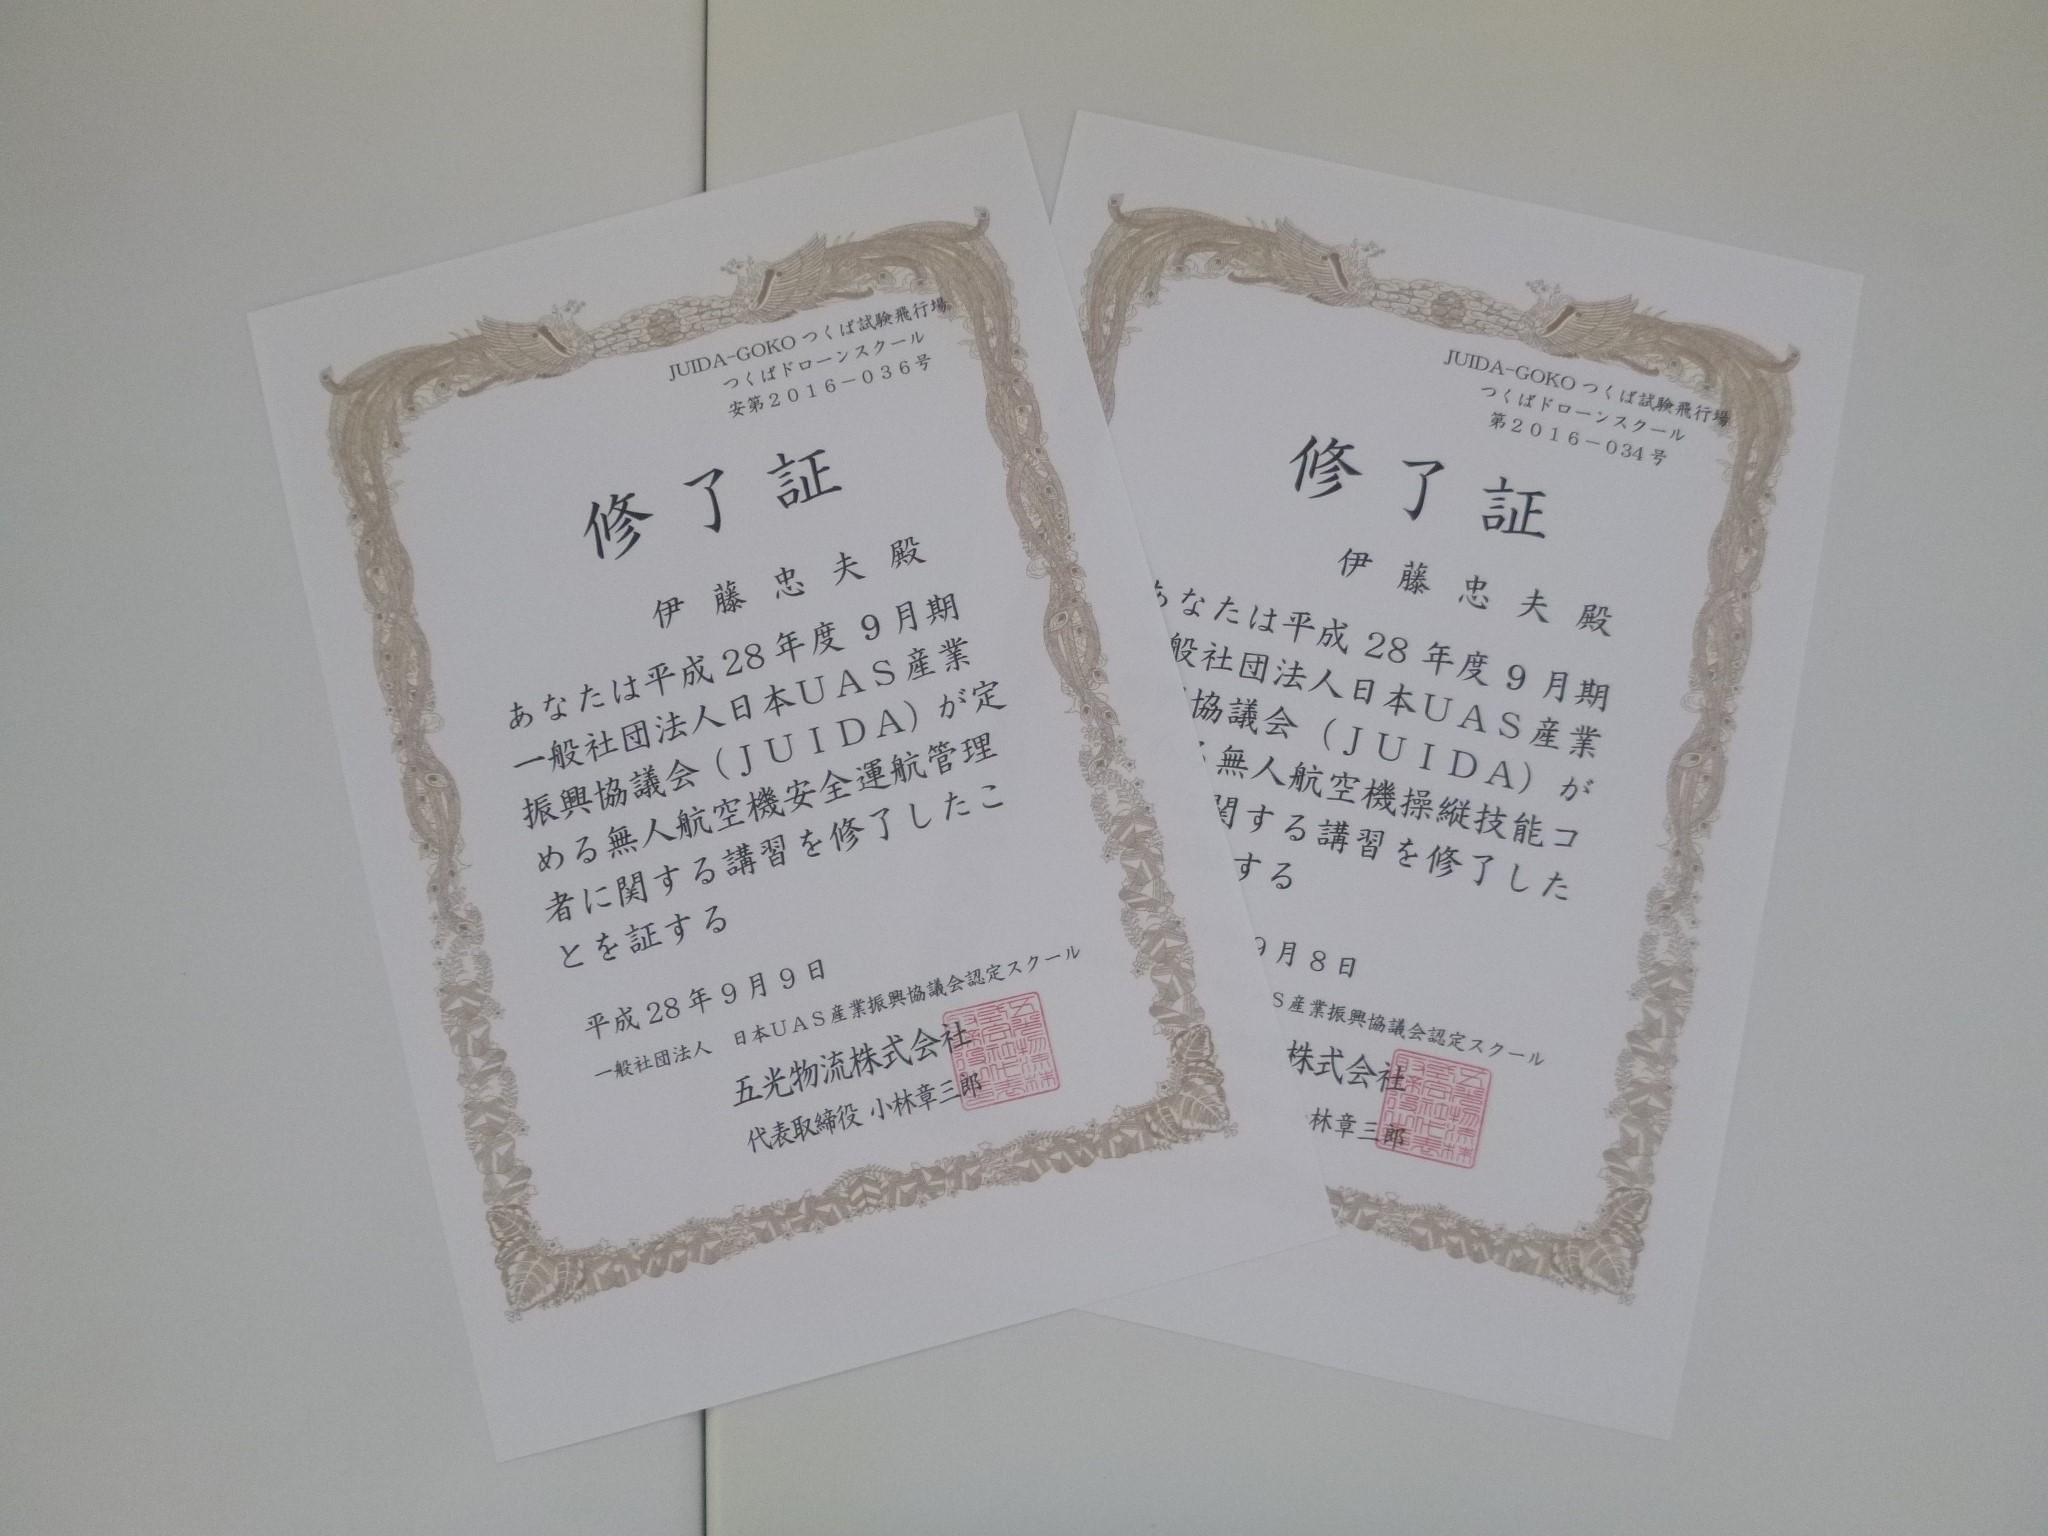 JUIDA-GOKO つくば試験飛行場
つくばドローンスクール
安第２０１６－０３６号
修了証
伊藤忠夫殿
あなたは平成 28 年度 ９月期
一般社団法人日本ＵＡＳ産業
振興協議会（ＪＵＩＤＡ）が定
める無人航空機安全運航管理
者に関する講習を修了したこ
とを証する
平成 28 年 9 月 9 日
一般社団法人　日本ＵＡＳ産業振興協議会認定スクール
五光物流株式会社
代表取締役 小林章三郎
JUIDA-GOKO つくば試験飛行場
つくばドローンスクール
第２０１６－034 号
修了証
伊藤忠夫殿
あなたは平成 28 年度 9 月期
般社団法人日本ＵＡＳ産業
協議会（ＪＵＩＤＡ）が
無人航空機操縦技能コ
関する講習を修了した
する
9 月 8 日
Ｓ産業振興協議会認定スクール
株式会社
林章三郎